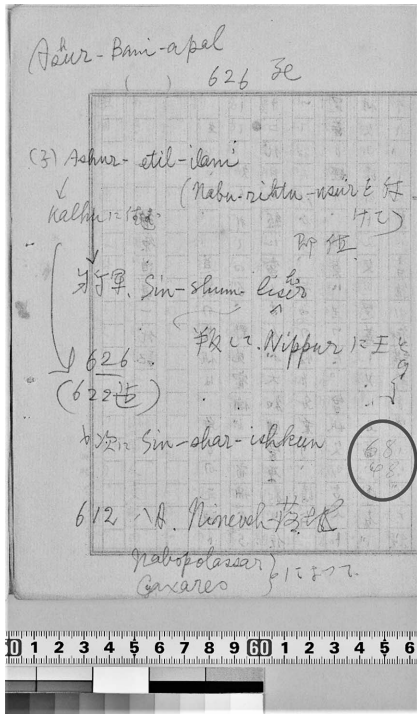 Ashur-Bani-apal
( ) 626 死
(子) Ashur-etil-ilani
(Nabu-rihtu-usur を
けて)
Kalhu に
即位
将軍. Sin-shum-lishir
叛して. Nippur に王
626
(622迄)
次に Sin-shar-ishkun
68
68
612 八月. Nineveh
Nabopolassar
Cyaxares
によって.
60 1 2 3 4 5 6 7 8 9 60 1 2 3 4 5 6